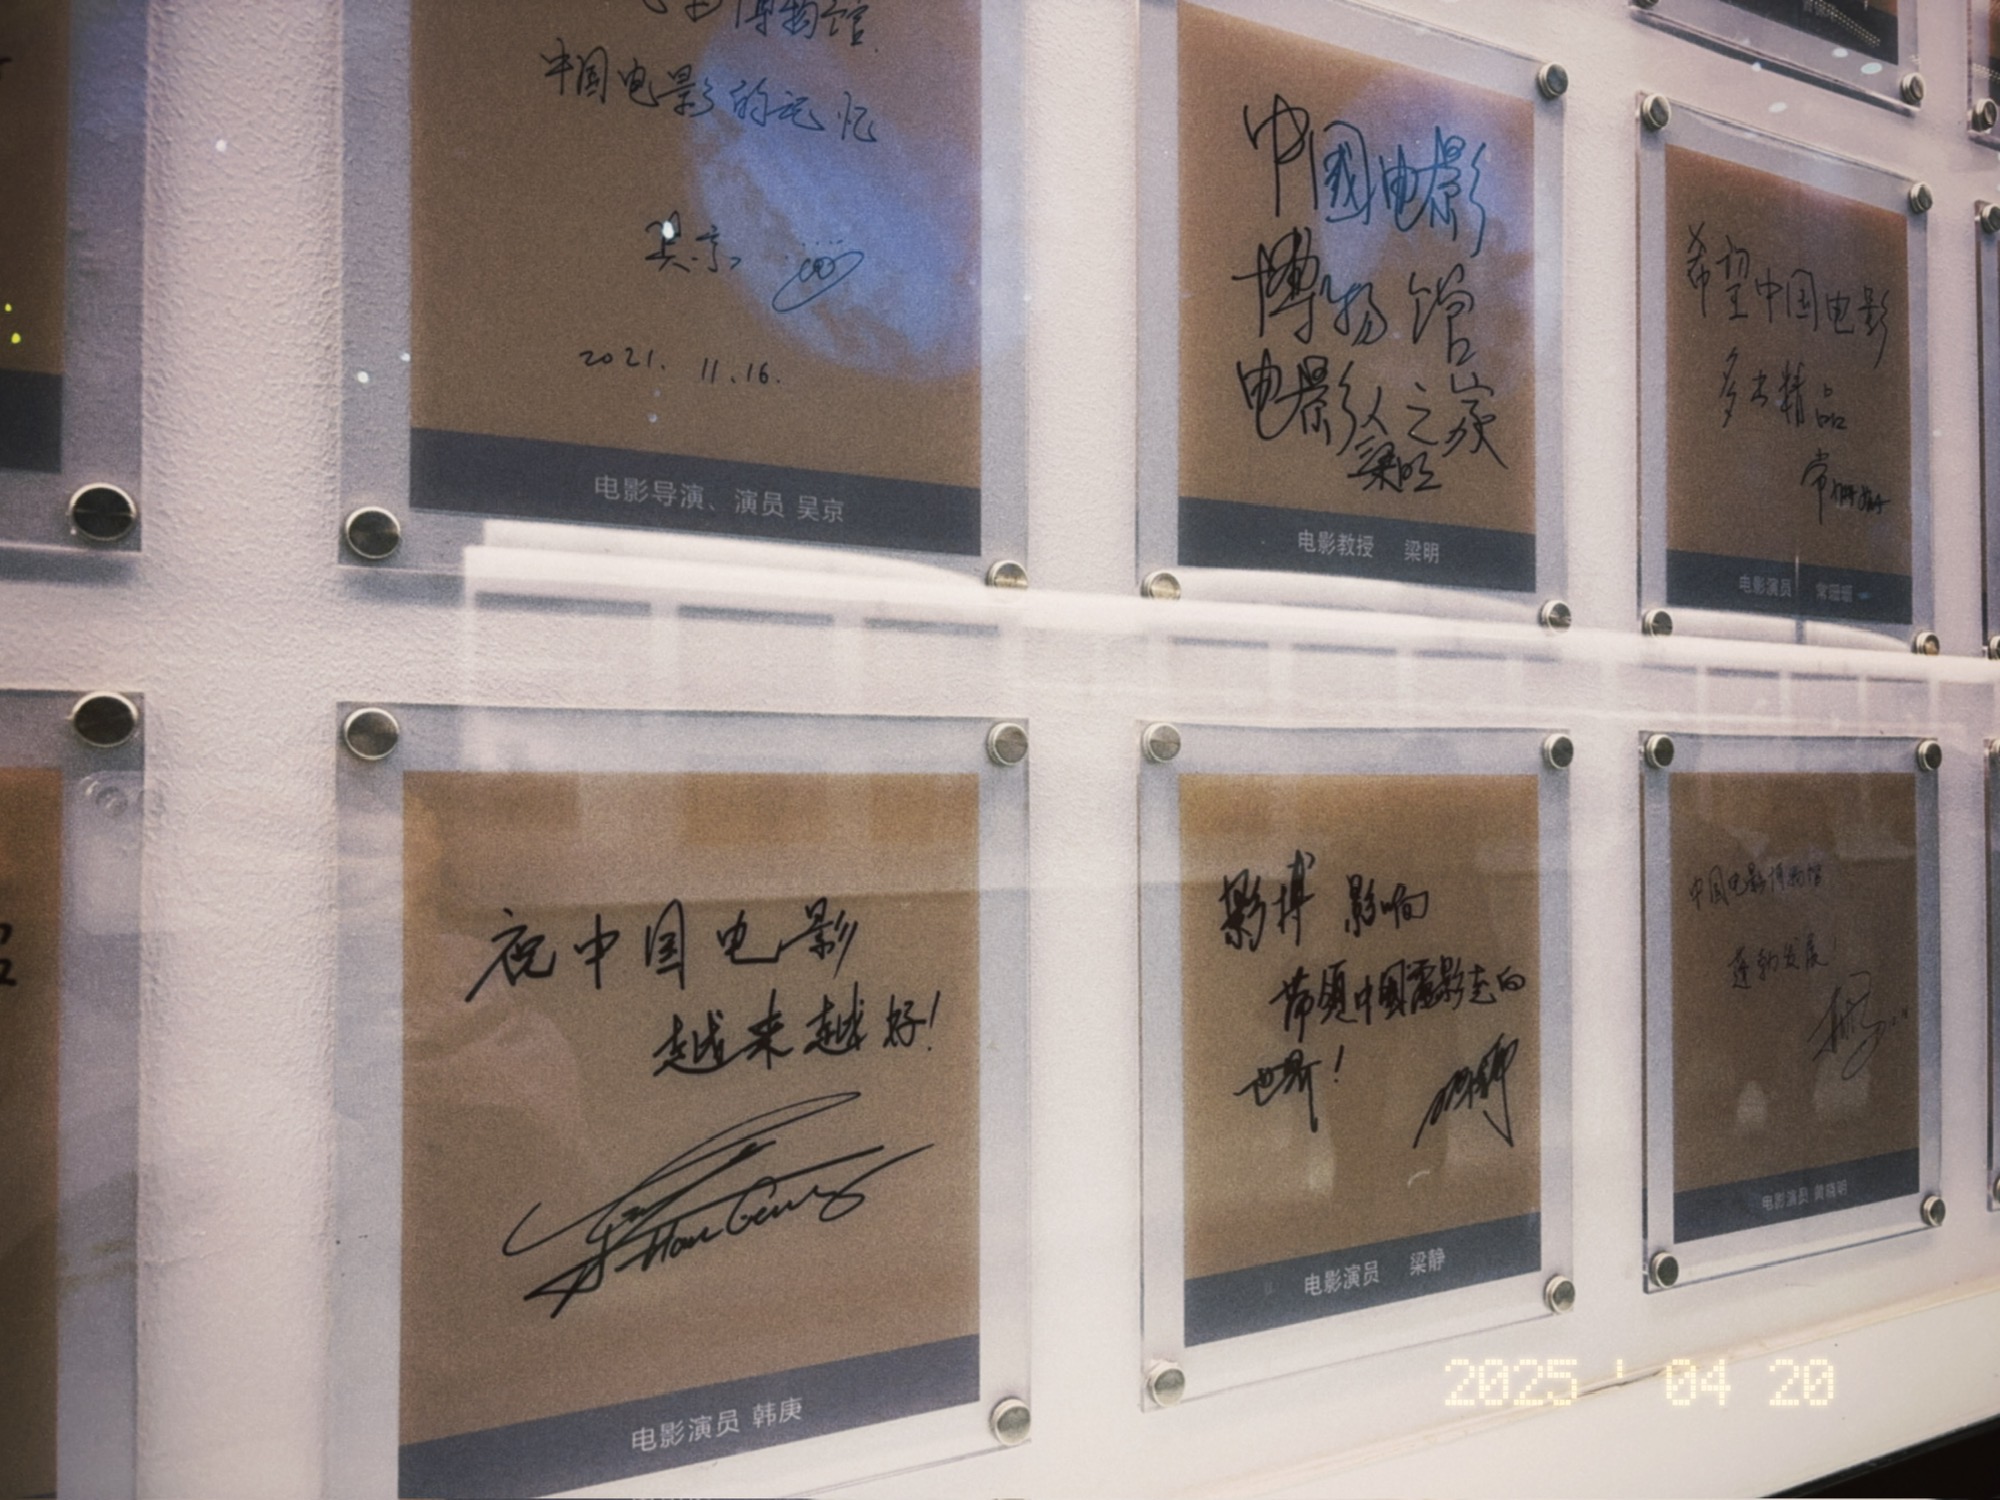 博物馆
中国电影的记忆
吴京
2021. 11. 16.
电影导演、演员 吴京
中国电影
博物馆
电影人之家
梁明
电影教授 梁明
希望中国电影
多出精品
电影演员
祝中国电影
越来越好!
Han Geng
电影演员 韩庚
影博 影响
带领中国電影走向
世界!
电影演员 梁静
中国电影博物馆
蓬勃发展!
电影演员 黄晓明
2025 ' 04 20